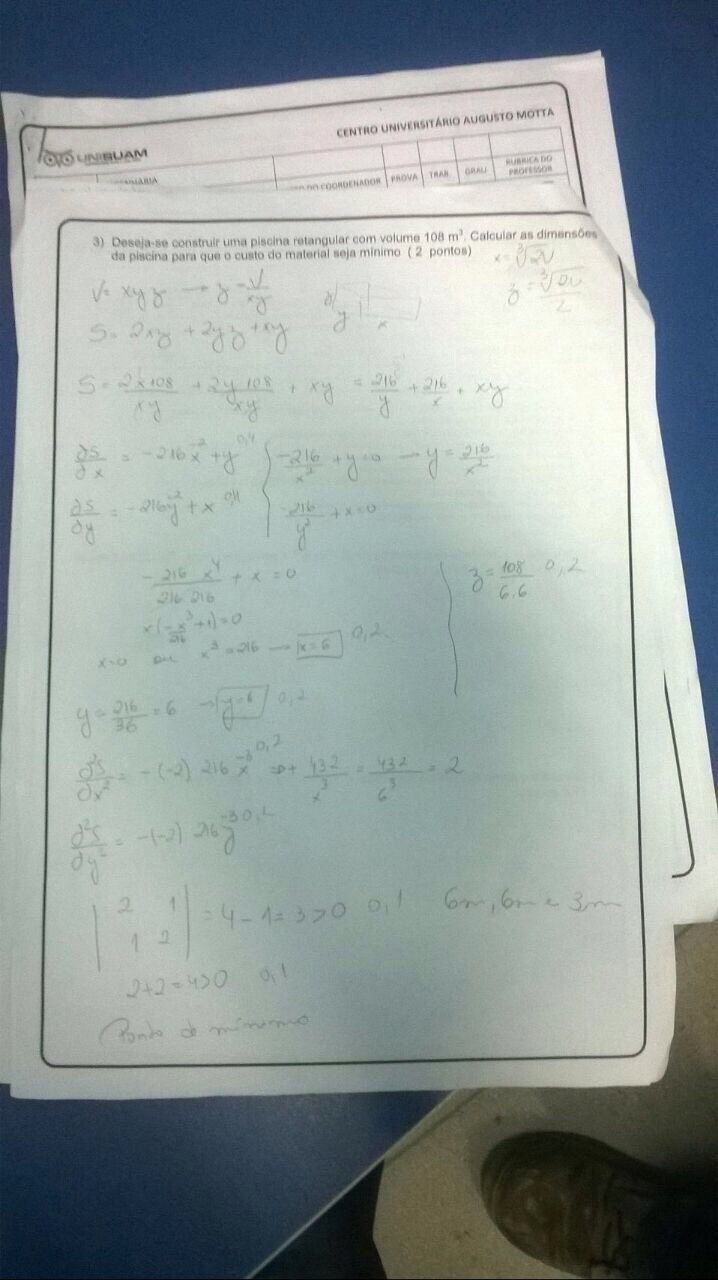 CENTRO UNIVERSITÁRIO AUGUSTO MOTTA
UNISUAM
COORDENADOR PROVA TRAB. GRAU RUBRICA DO PROFESSOR
3) Deseja-se construir uma piscina retangular com volume 108 m³. Calcular as dimensões
da piscina para que o custo do material seja mínimo ( 2 pontos)
x = ∛2V
V = xyz → z = V/xy
z = ∛2V/2
z y x
S = 2xz + 2yz + xy
S = 2x108/xy + 2y108/xy + xy = 216/y + 216/x + xy
∂S/∂x = -216x⁻² + y 0,4 { -216/x² + y = 0 → y = 216/x²
∂S/∂y = -216y⁻² + x 0,4 -216/y² + x = 0
-216 x⁴/216 216 + x = 0
z = 108/6.6 0,2
x(-x³/216 + 1) = 0
x=0 ou x³ = 216 → x = 6 0,2
y = 216/36 = 6 → y = 6 0,2
∂²S/∂x² = -(-2) 216 x⁻³ 0,2 ⇒ + 432/x³ = 432/6³ = 2
∂²S/∂y² = -(-2) 216 y⁻³ 0,2
| 2 1 |
| 1 2 | = 4 - 1 = 3 > 0 0,1 6m, 6m e 3m
2+2 = 4 > 0 0,1
Ponto de mínimo